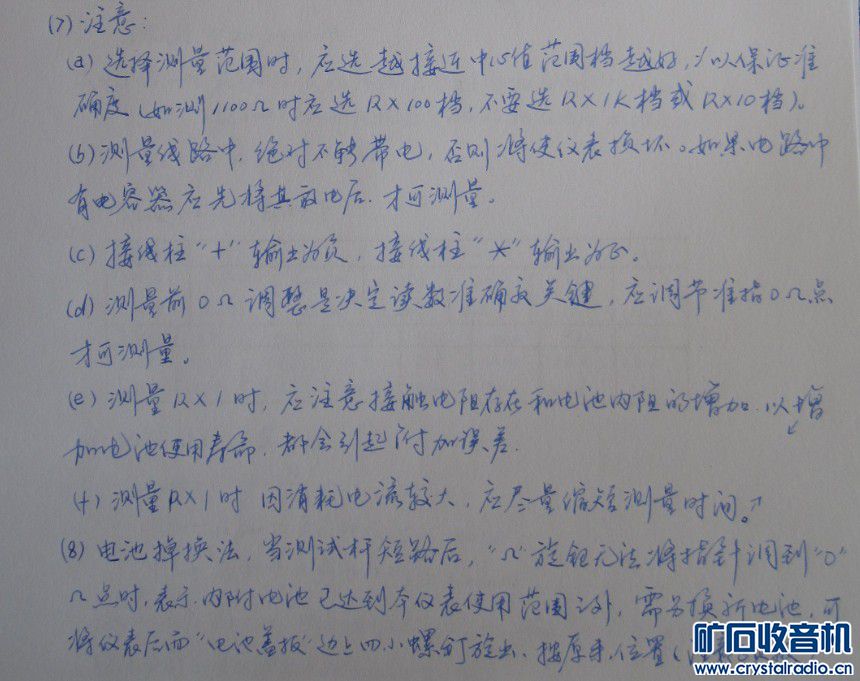 (7) 注意:
(a) 选择测量范围时, 应选越接近中心值范围档越好, 以保证准
确度 (如测1100Ω时应选R×100档, 不要选R×1K档或R×10档)。
(b) 测量线路中, 绝对不能带电, 否则将使仪表损坏。如果电路中
有电容器应先将其放电后. 才可测量。
(c) 接线柱“+”输出为负, 接线柱“*”输出为正。
(d) 测量前0Ω调整是决定读数准确度关键, 应调节准指0Ω点
才可测量。
(e) 测量R×1时, 应注意接触电阻存在和电池内阻的增加. 以增
加电池使用寿命. 都会引起附加误差.
(f) 测量R×1时 因消耗电流较大, 应尽量缩短测量时间。
(8) 电池掉换法, 当测试杆短路后, “Ω”旋钮无法将指针调到“0”
Ω点时, 表示内附电池已达到本仪表使用范围之外, 需另换新电池, 可
将仪表后面“电池盖板”边上四小螺钉旋出、按原来位置(
矿石收音机
www.crystalradio.cn